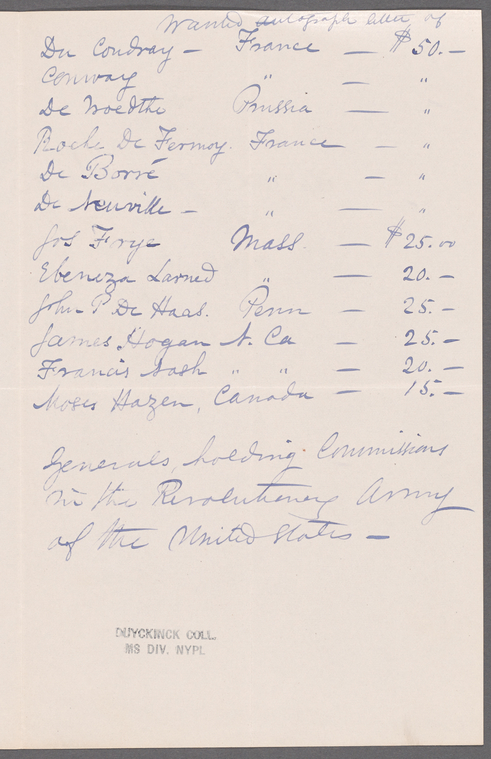 Wanted autograph letter of
Du Coudray — France — $50.—
Conway " — "
De Woedthe Prussia — "
Roche De Fermoy. France — "
De Borré " — "
De Neuville — " — "
Jos Frye Mass. — $25.00
Ebeneza Larned " — 20.—
John P. De Haas. Penn — 25.—
James Hogan N. Ca — 25.—
Francis Nash " " — 20.—
Moses Hazen, Canada — 15.—
Generals, holding Commissions
in the Revolutionary Army
of the United States —
DUYCKINCK COLL.
MS DIV. NYPL